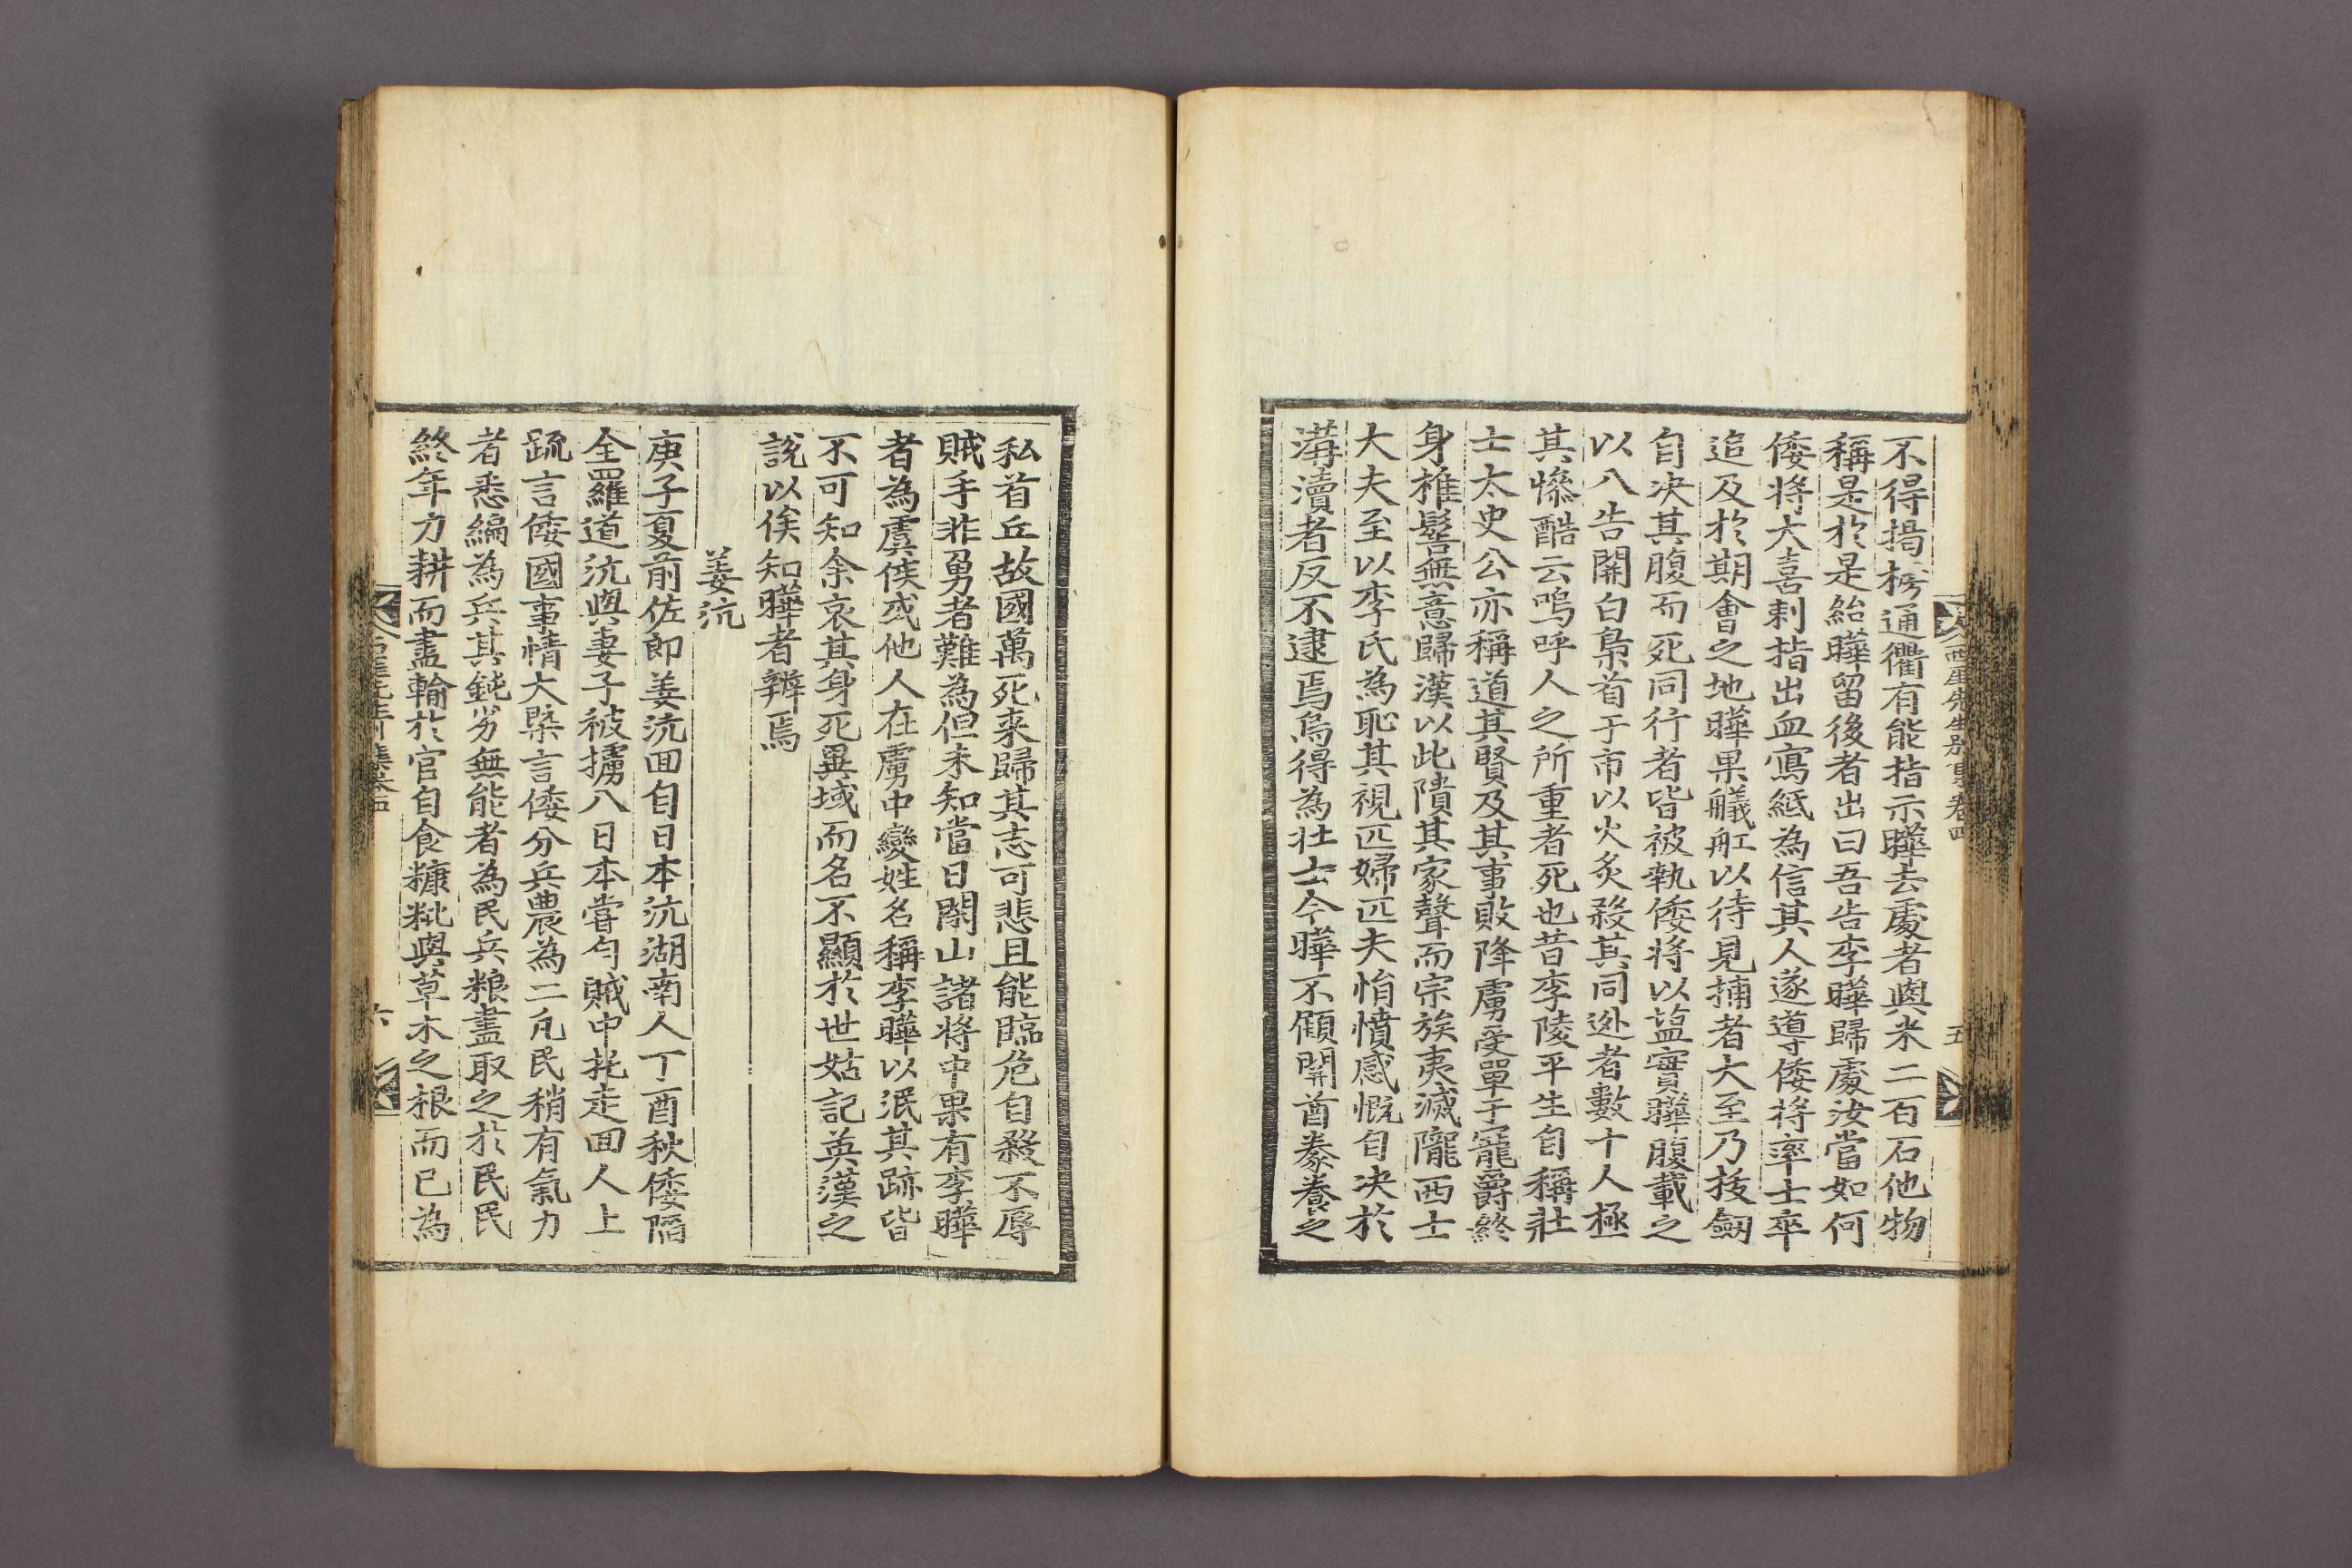 不得揭榜通衢有能指示曄去處者與米二百石他物
稱是於是紿曄留後者出曰吾告李曄歸處汝當如何
倭將大喜刺指出血寫紙為信其人遂導倭將率士卒
追及於期會之地曄果艤舡以待見捕者大至乃拔劒
自决其腹而死同行者皆被執倭將以塩實曄腹載之
以八告關白梟首于市以火炙殺其同逃者數十人極
其慘酷云嗚呼人之所重者死也昔李陵平生自稱壯
士太史公亦稱道其賢及其事敗降虜受單于寵爵終
身椎髻無意歸漢以此隤其家聲而宗族夷滅隴西士
大夫至以李氏為恥其視匹婦匹夫悁憤感慨自决於
溝瀆者反不逮焉烏得為壯士今曄不顧開酋豢養之
西厓先生別集卷四
五
私首丘故國萬死来歸其志可悲且能臨危自殺不辱
賊手非勇者難為但未知當日閑山諸將中果有李曄
者為虞侯或他人在虜中變姓名稱李曄以泯其跡皆
不可知余哀其身死異域而名不顯於世姑記英漢之
說以俟知曄者辨焉
姜沆
庚子夏前佐郎姜沆囬自日本沆湖南人丁酉秋倭陷
全羅道沆與妻子被擄八日本嘗勻賊中扥走囬人上
疏言倭國事情大槩言倭分兵農為二凡民稍有氣力
者悉編為兵其鈍劣無能者為民兵粮盡取之於民民
終年力耕而盡輸於官自食糠粃與草木之根而已為
六